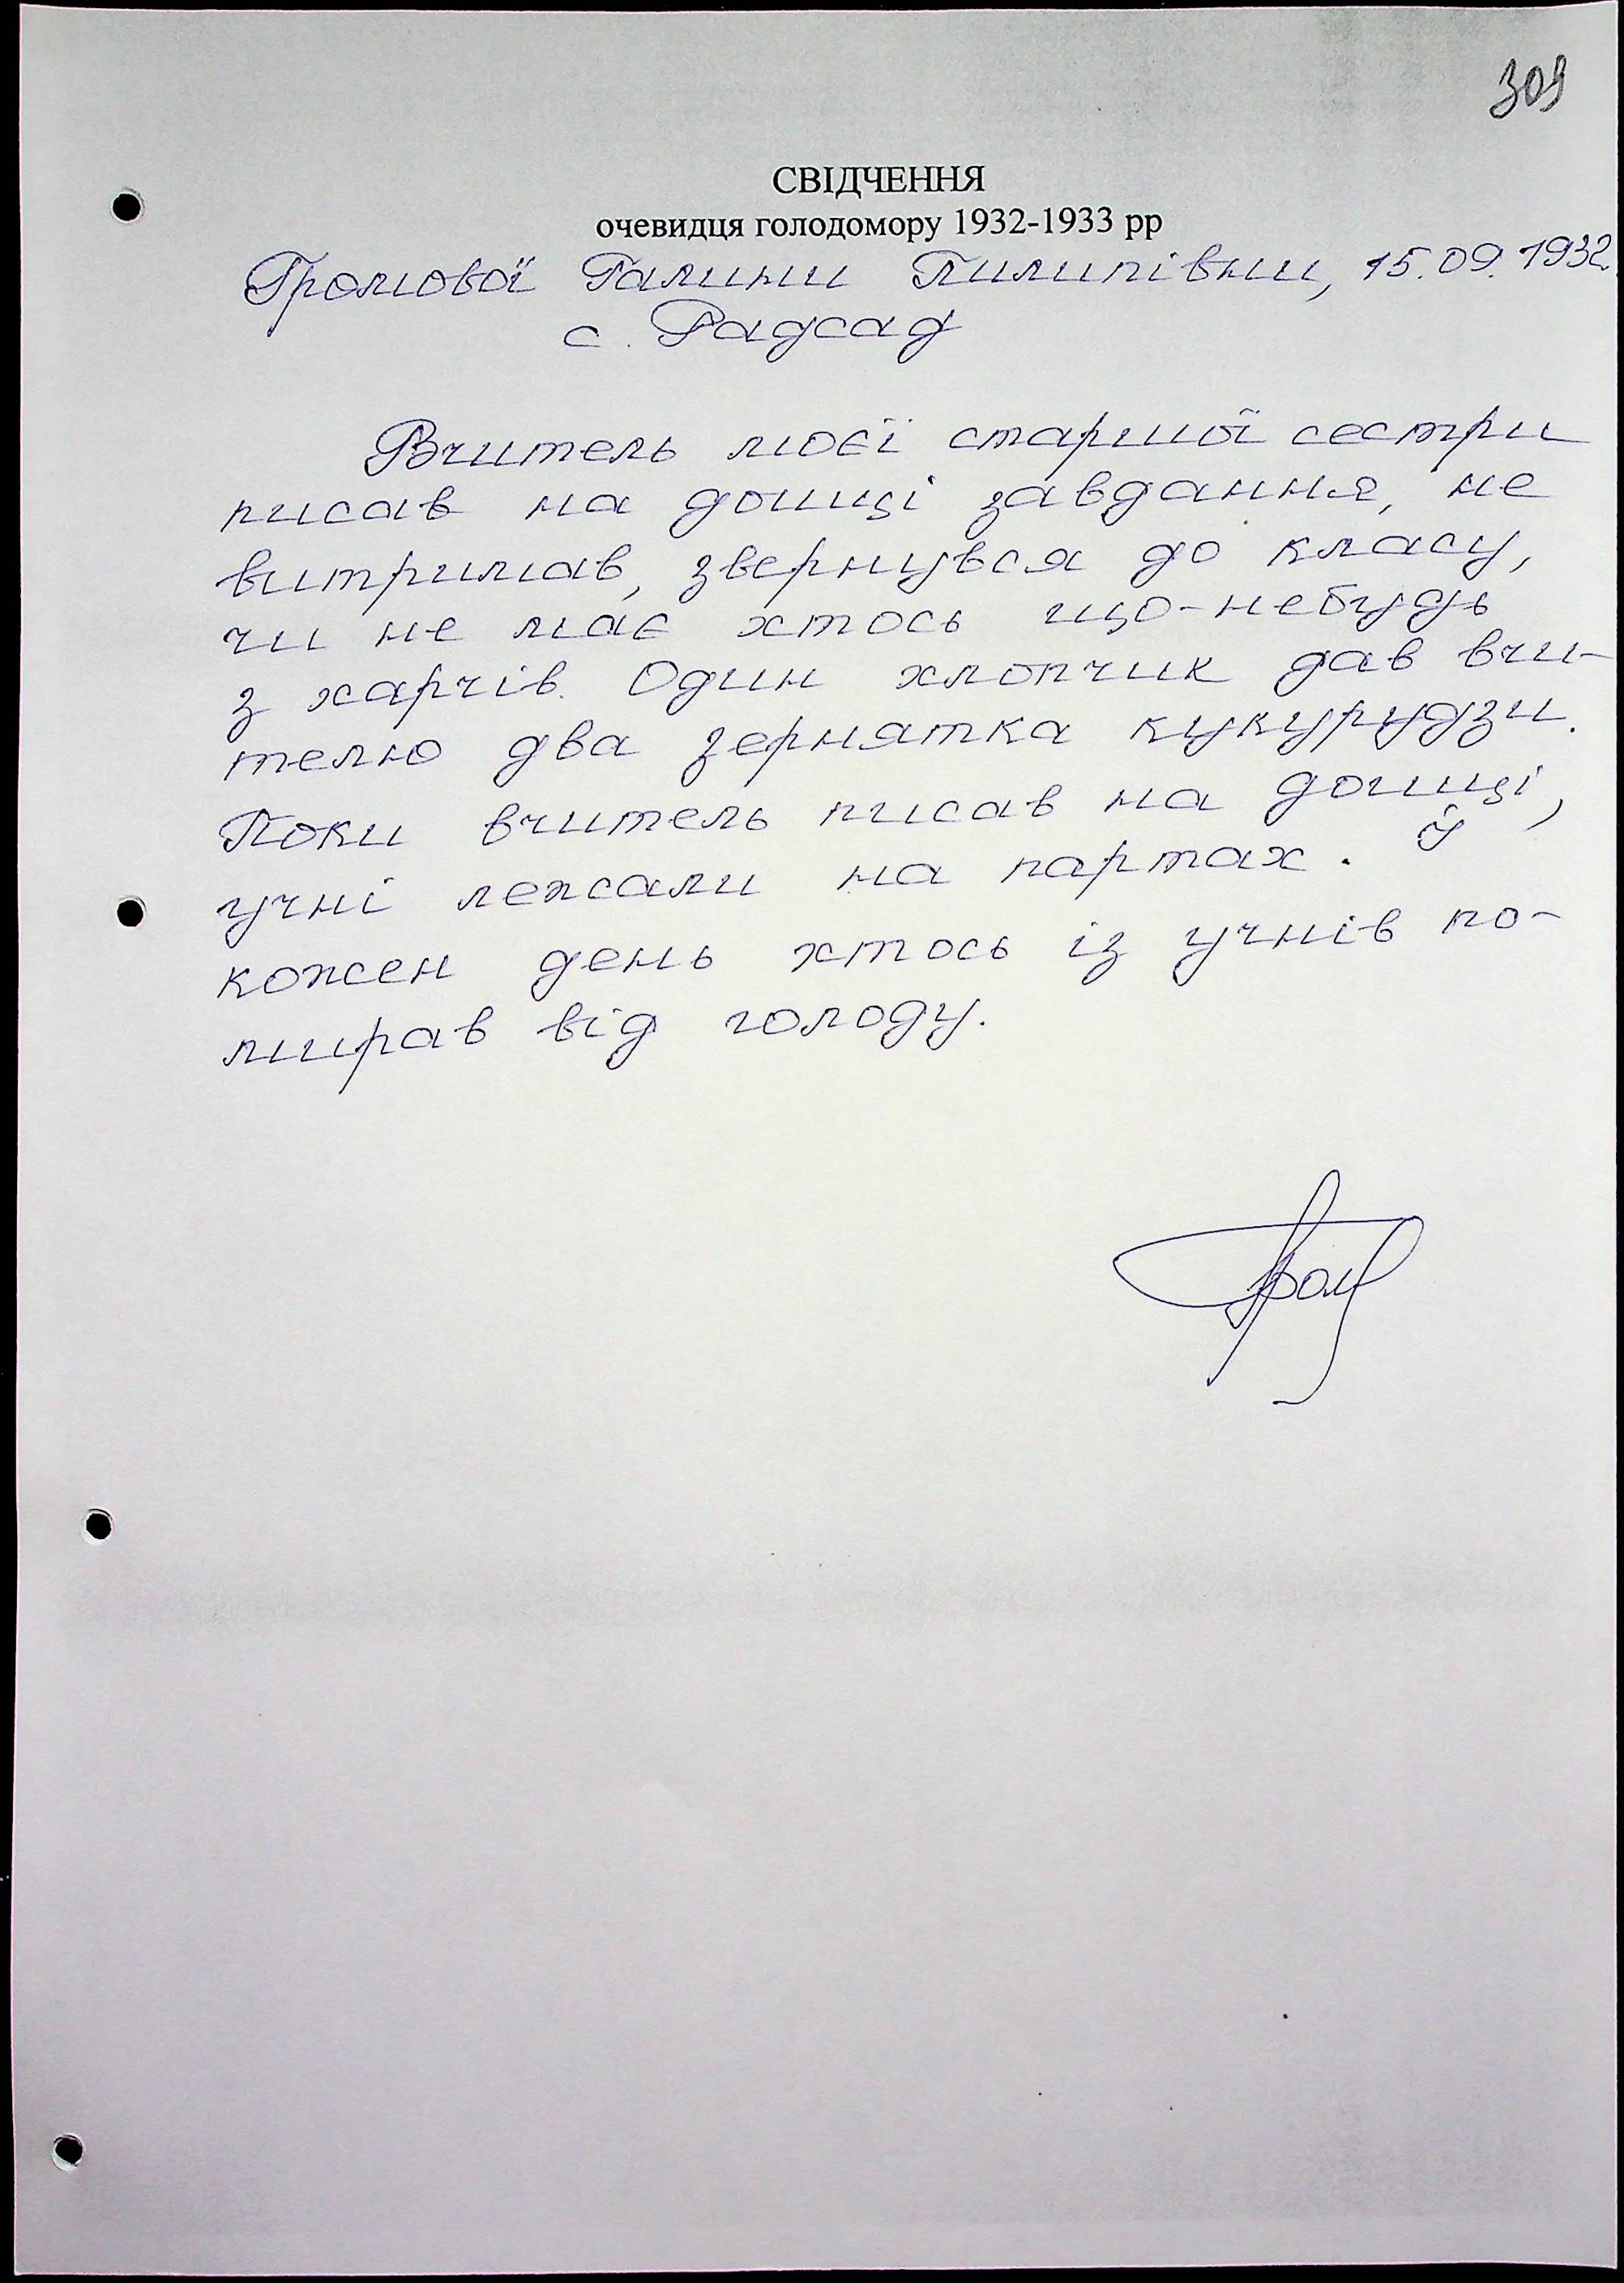 309
СВІДЧЕННЯ
очевидця голодомору 1932-1933 рр
Громової Галини Пилипівни, 15.09.1932.
с. Радсад
Вчитель моєї старшої сестри
писав на дошці завдання, не
витримав, звернувся до класу,
чи не має хтось що-небудь
з харчів. Один хлопчик дав вчи-
телю два зернятка кукурудзи.
Поки вчитель писав на дошці,
учні лежали на партах. Й
кожен день хтось із учнів по-
мирав від голоду.
Гром